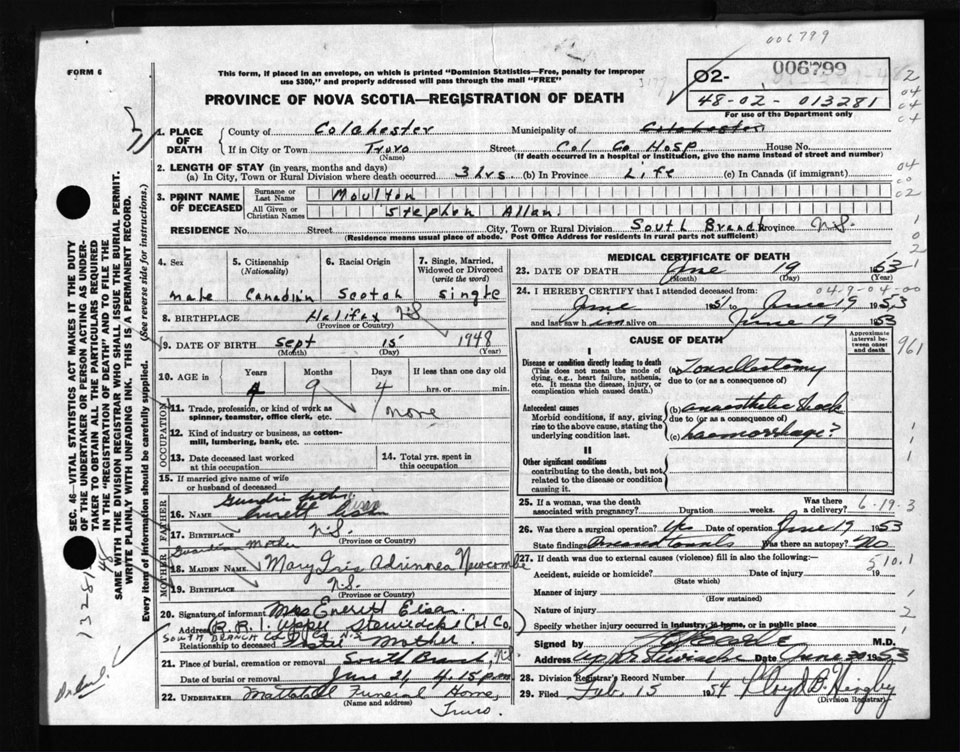 006799
FORM 6
This form, if placed in an envelope, on which is printed "Dominion Statistics—Free, penalty for improper
use $300," and properly addressed will pass through the mail "FREE"
PROVINCE OF NOVA SCOTIA—REGISTRATION OF DEATH
02- 006799
48-02-013281
For use of the Department only
1. PLACE OF DEATH
County of Colchester Municipality of Colchester
If in City or Town Truro Street Col Co Hosp. House No.
(Name) (If death occurred in a hospital or institution, give the name instead of street and number)
2. LENGTH OF STAY (in years, months and days)
(a) In City, Town or Rural Division where death occurred 3 hrs. (b) In Province Life (c) In Canada (if immigrant)
3. PRINT NAME OF DECEASED
Surname or Last Name Moulton
All Given or Christian Names Stephen Allan.
RESIDENCE No. Street City, Town or Rural Division South Branch Province N.S.
(Residence means usual place of abode. Post Office Address for residents in rural parts not sufficient)
4. Sex
male
5. Citizenship (Nationality)
Canadian
6. Racial Origin
Scotch
7. Single, Married, Widowed or Divorced (write the word)
single
8. BIRTHPLACE Halifax N.S.
(Province or Country)
9. DATE OF BIRTH Sept 15 1948
(Month) (Day) (Year)
10. AGE in Years Months Days If less than one day old
4 9 4 hrs. or min.
OCCUPATION
11. Trade, profession, or kind of work as spinner, teamster, office clerk, etc. none
12. Kind of industry or business, as cotton-mill, lumbering, bank, etc.
13. Date deceased last worked at this occupation
14. Total yrs. spent in this occupation
15. If married give name of wife or husband of deceased
FATHER
Guardian father
16. NAME Everett
17. BIRTHPLACE N.S.
(Province or Country)
MOTHER
Guardian Mother
18. MAIDEN NAME Mary Iris Newcombe
19. BIRTHPLACE N.S.
(Province or Country)
20. Signature of informant Mrs Everett
Address R.R. 1. Upper Stewiacke Col Co.
SOUTH BRANCH Col. Co. N.S.
Relationship to deceased Foster Mother.
21. Place of burial, cremation or removal South Branch, N.S.
Date of burial or removal June 21, 4.15 p.m
22. UNDERTAKER Mattatall Funeral Home,
(Name and address) Truro.
MEDICAL CERTIFICATE OF DEATH
23. DATE OF DEATH June 19 1953
(Month) (Day) (Year)
04-9-04-00
24. I HEREBY CERTIFY that I attended deceased from:
June 1951 to June 19 1953
and last saw him alive on June 19 1953
CAUSE OF DEATH
Approximate interval between onset and death
I
Disease or condition directly leading to death
(This does not mean the mode of dying, e.g., heart failure, asthenia, etc. It means the disease, injury, or complication which caused death.)
(a) Tonsillectomy
due to (or as a consequence of)
Antecedent causes
Morbid conditions, if any, giving rise to the above cause, stating the underlying condition last.
(b) anaesthetic shock
due to (or as a consequence of)
(c) haemorrhage?
II
Other significant conditions
contributing to the death, but not related to the disease or condition causing it.
25. If a woman, was the death associated with pregnancy? Duration weeks Was there a delivery?
6-19-3
26. Was there a surgical operation? Yes Date of operation June 19 1953
State findings Diseased tonsils Was there an autopsy? No
27. If death was due to external causes (violence) fill in also the following:
Accident, suicide or homicide? Date of injury 19
(State which)
Manner of injury
(How sustained)
Nature of injury
Specify whether injury occurred in industry, in home, or in public place
Signed by M.D.
Address Date June 20 1953
28. Division Registrar's Record Number 1
29. Filed Feb. 15 1954
(Division Registrar)
SEC. 46—VITAL STATISTICS ACT MAKES IT THE DUTY
OF THE UNDERTAKER OR PERSON ACTING AS UNDER-
TAKER TO OBTAIN ALL THE PARTICULARS REQUIRED
IN THE "REGISTRATION OF DEATH" AND TO FILE THE
SAME WITH THE DIVISION REGISTRAR WHO SHALL ISSUE THE BURIAL PERMIT.
WRITE PLAINLY WITH UNFADING INK. THIS IS A PERMANENT RECORD.
Every item of information should be carefully supplied. (See reverse side for instructions.)
961